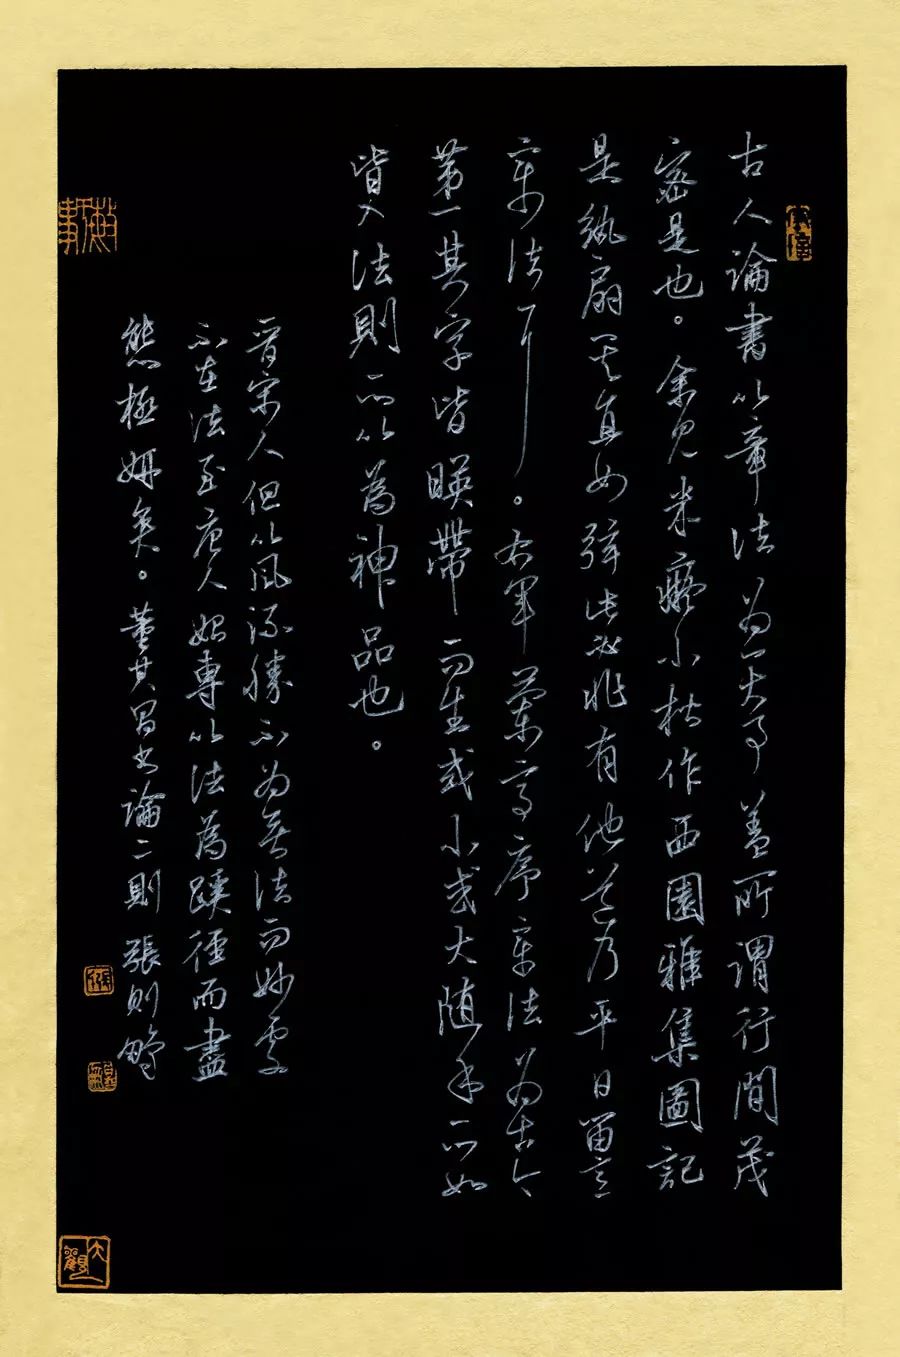 古人論書以章法为一大事蓋所謂行間茂
密是也。余見米癡小楷作西園雅集圖記
是紈扇其直如弦此必非有他道乃平日留意
章法耳。右軍蘭亭序章法为古今
第一其字皆暎帶而生或小或大随手所如
皆入法則所以為神品也。
晋宋人但以風流勝不为無法而妙處
不在法至唐人始專以法為蹊徑而盡
態極妍矣。董其昌書論二則 張則
大觀